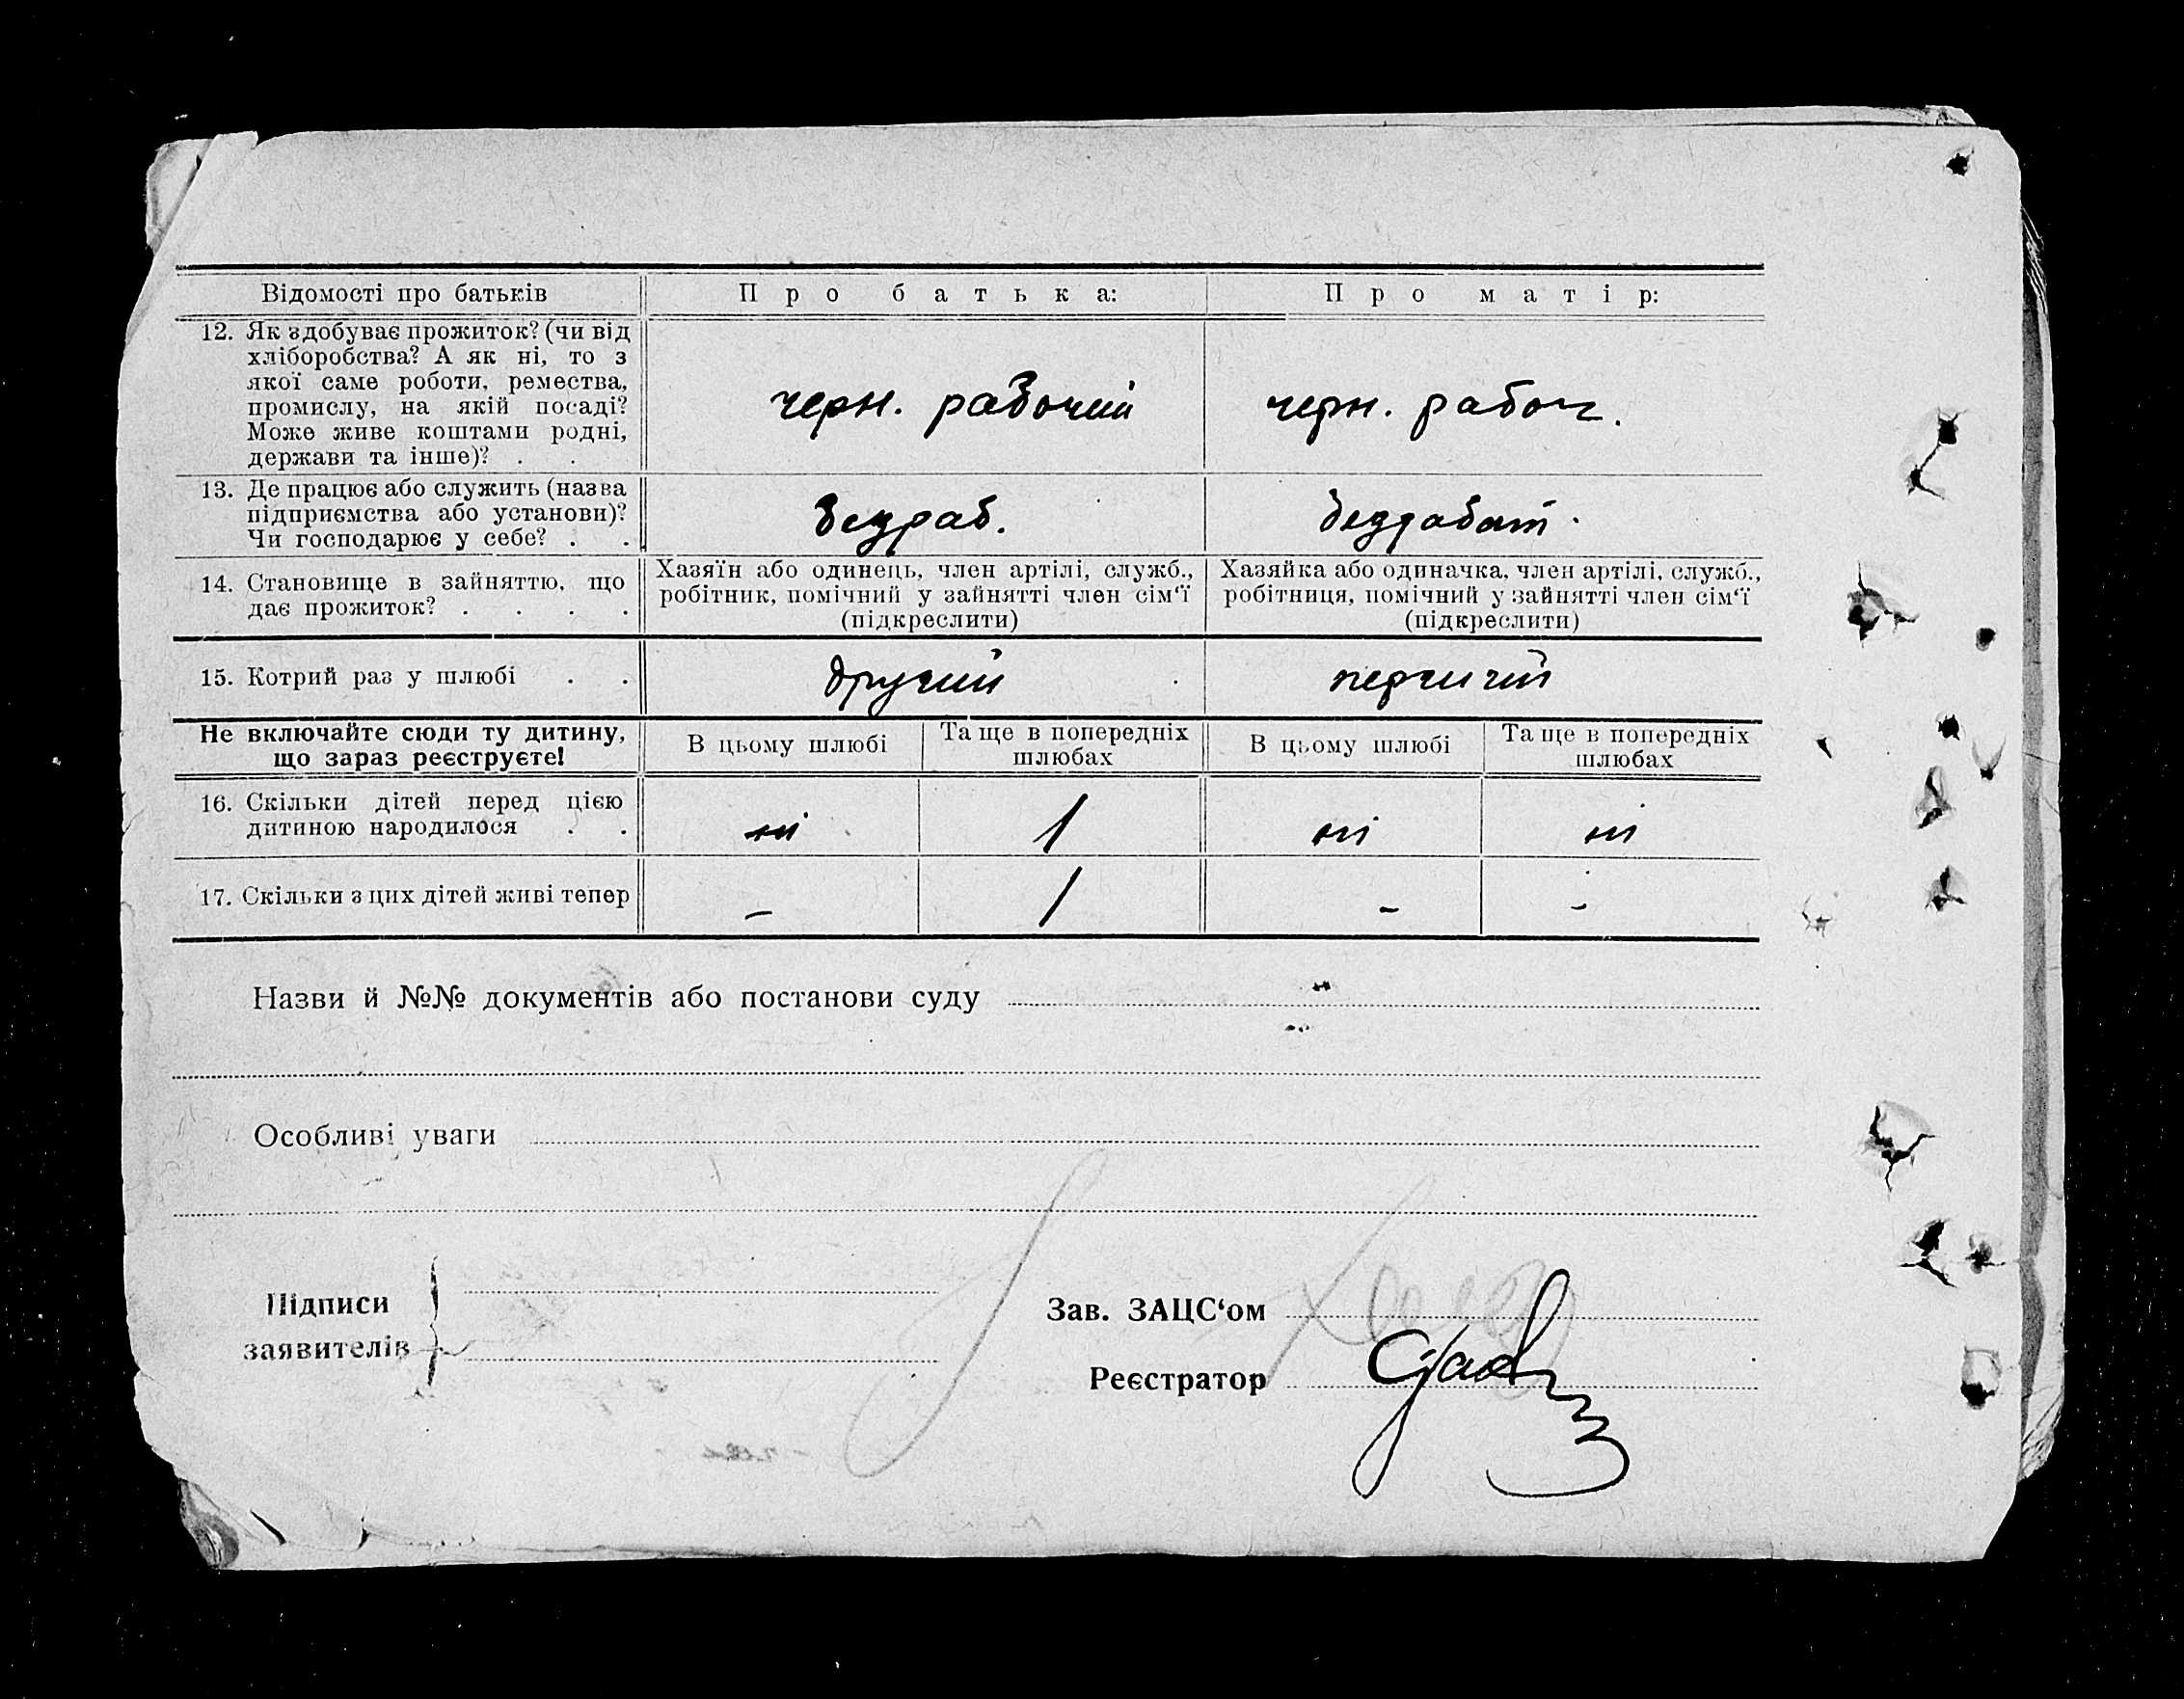 Відомості про батьків
Про батька:
Про матір:
12. Як здобуває прожиток? (чи від
хліборобства? А як ні, то з
якої саме роботи, ремества,
промислу, на якій посаді?
Може живе коштами родні,
держави та інше)? . .
черн. рабочий
черн. рабоч.
13. Де працює або служить (назва
підприємства або установи)?
Чи господарює у себе? . .
безраб.
безработ.
14. Становище в зайняттю, що
дає прожиток? . . . .
Хазяїн або одинець, член артілі, служб.,
робітник, помічний у зайнятті член сім‘ї
(підкреслити)
Хазяйка або одиначка, член артілі, служб.,
робітниця, помічний у зайнятті член сім‘ї
(підкреслити)
15. Котрий раз у шлюбі . .
другий
Не включайте сюди ту дитину,
що зараз реєструєте!
В цьому шлюбі
Та ще в попередніх
шлюбах
В цьому шлюбі
Та ще в попередніх
шлюбах
16. Скільки дітей перед цією
дитиною народилося . .
ні
1
ні
ні
17. Скільки з цих дітей живі тепер
–
1
–
–
Назви й №№ документів або постанови суду
Особливі уваги
Підписи
заявителів
Зав. ЗАЦС‘ом
Реєстратор